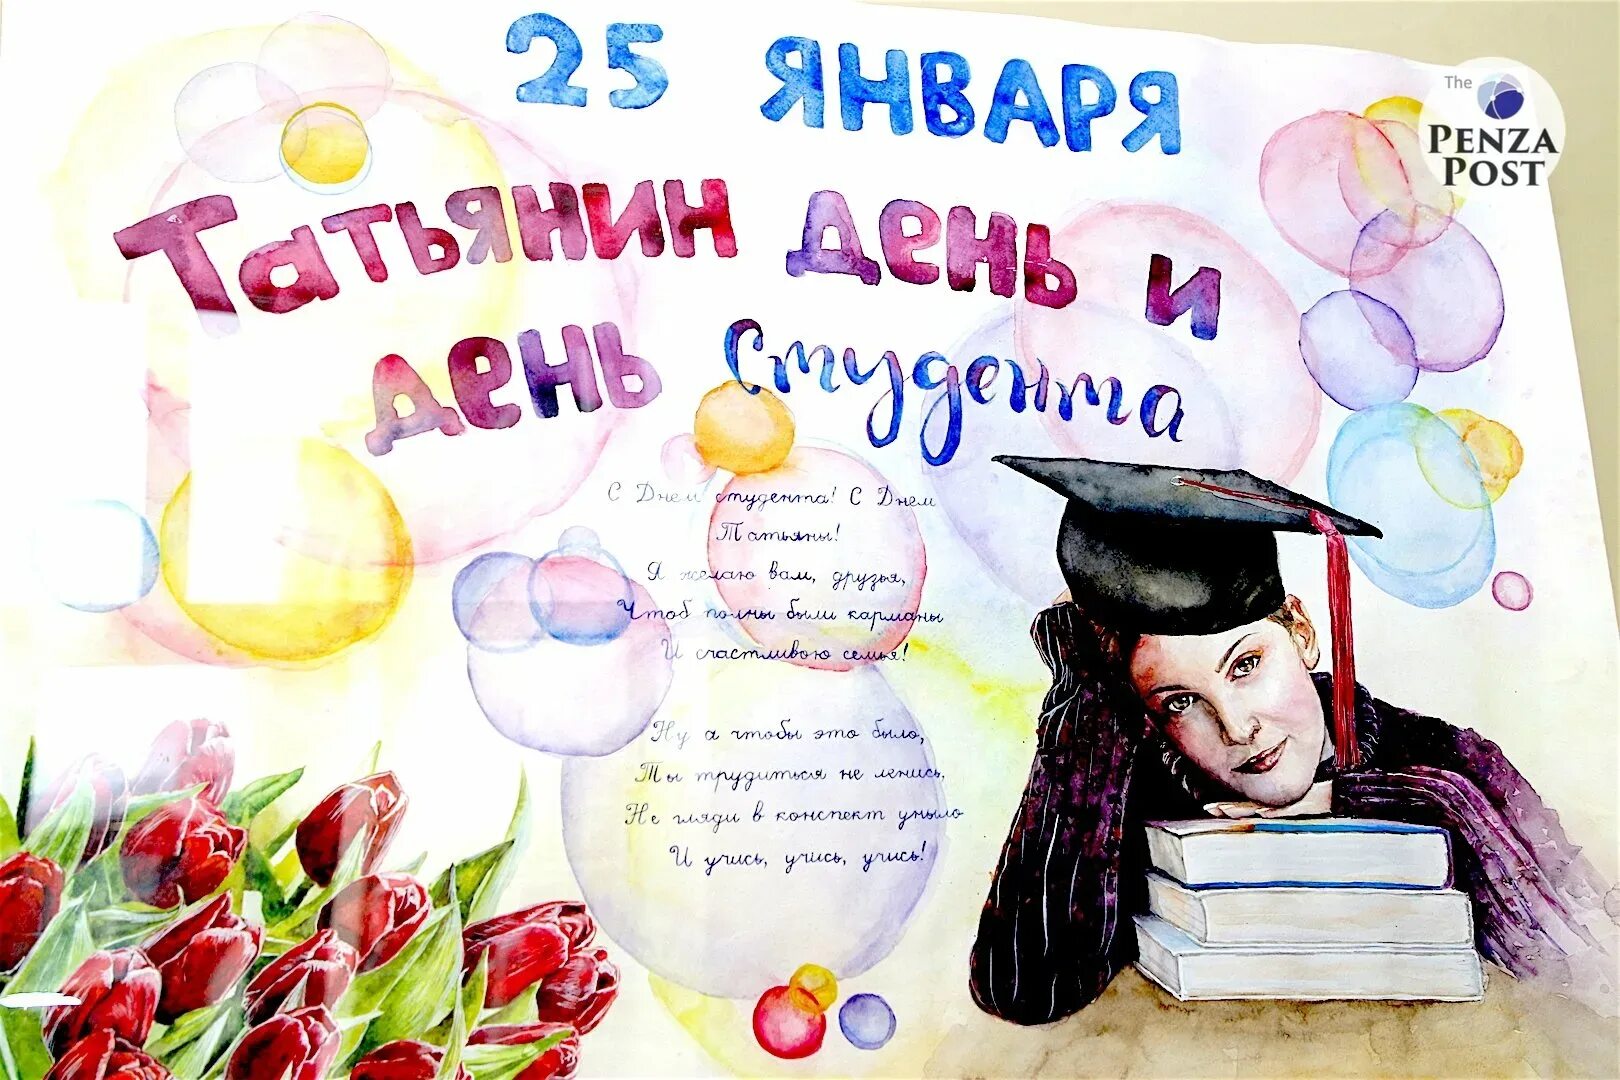 25 ЯНВАРЯ
The
PENZA
POST
Татьянин день и
день Студента
С Днем студента! С Днем
Татьяны!
Я желаю вам, друзья,
Чтоб полны были карманы
И счастливою семья!
Ну а чтобы это было,
Ты трудиться не ленись,
Не гляди в конспект уныло
И учись, учись, учись!